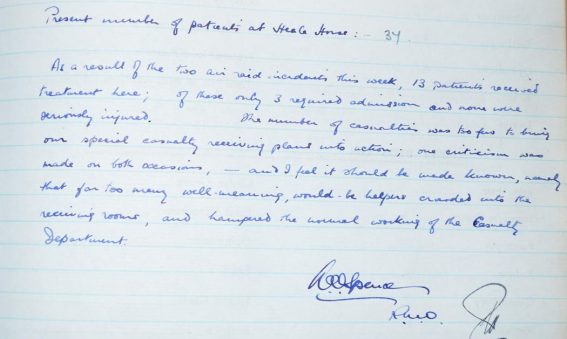 Present number of patients at Heale House:- 34
As a result of the two air raid incidents this week, 13 patients received
treatment here; of these only 3 required admission and none were
seriously injured. The number of casualties was too few to bring
our special casualty receiving plans into action; one criticism was
made on both occasions, — and I feel it should be made known, namely
that far too many well-meaning, would-be helpers crowded into the
receiving rooms, and hampered the normal working of the Casualty
Department.
Spence
R.M.O.